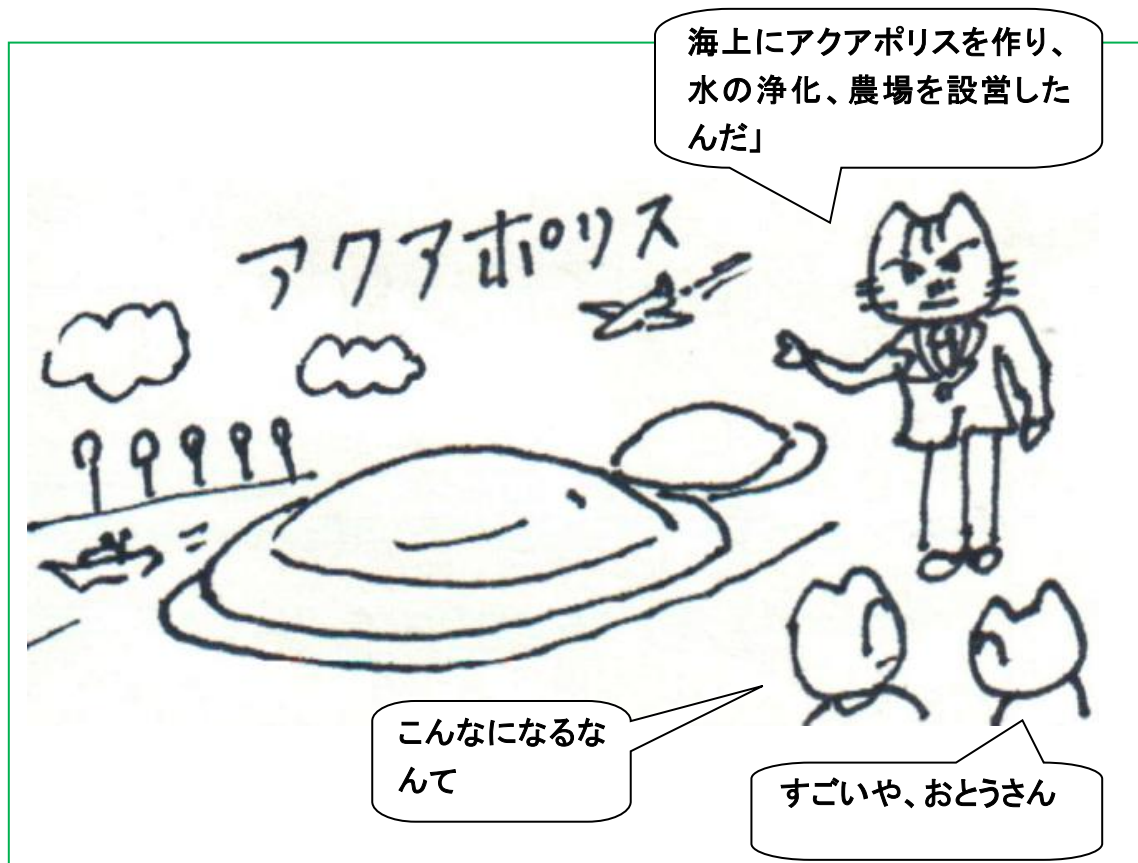 海上にアクアポリスを作り、
水の浄化、農場を設営した
んだ」
アクアポリス
こんなになるな
んて
すごいや、おとうさん